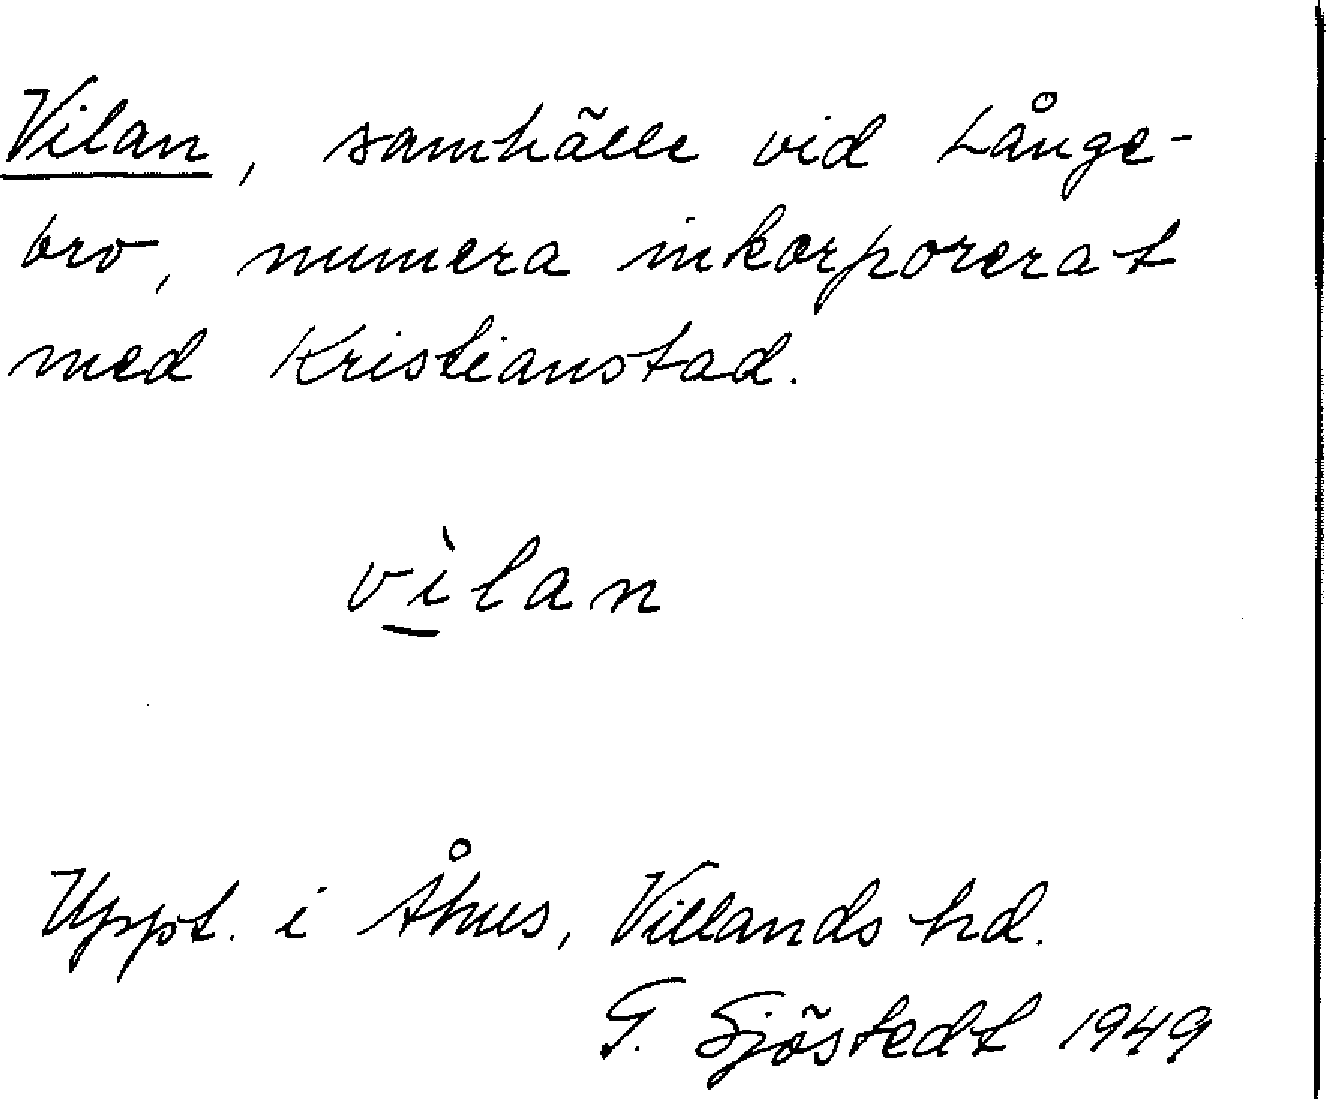 Vilan, samhälle vid Långe-
bro, numera inkorporerat
med Kristianstad.
vìlan
Uppt. i Åhus, Villands hd.
G. Sjöstedt 1949